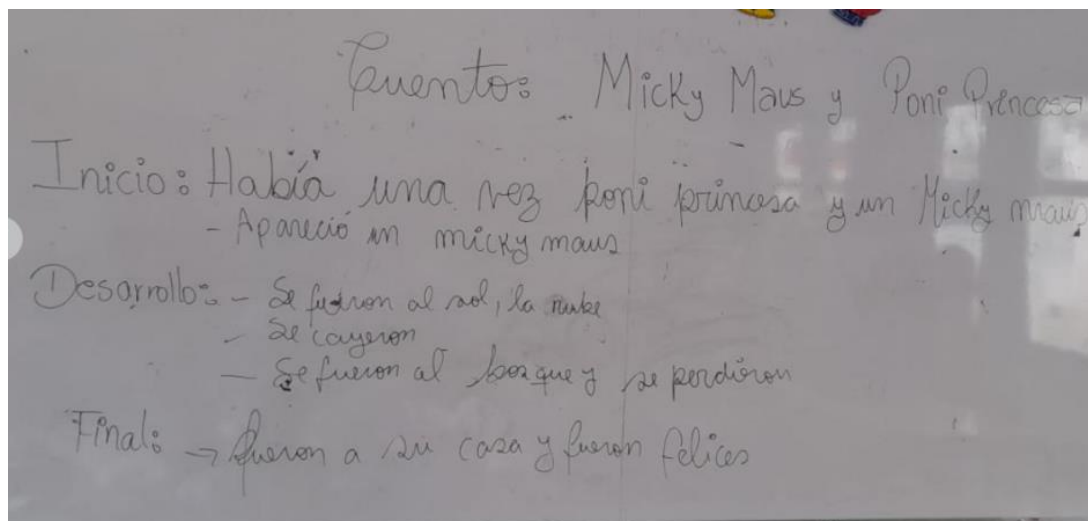 Cuento: Micky Maus y Poni Princesa
Inicio: Había una vez poni princesa y un Micky maus
- Apareció un micky maus
Desarrollo: - Se fueron al sol, la nube
- Se cayeron
- Se fueron al bosque y se perdieron
Final: → fueron a su casa y fueron felices